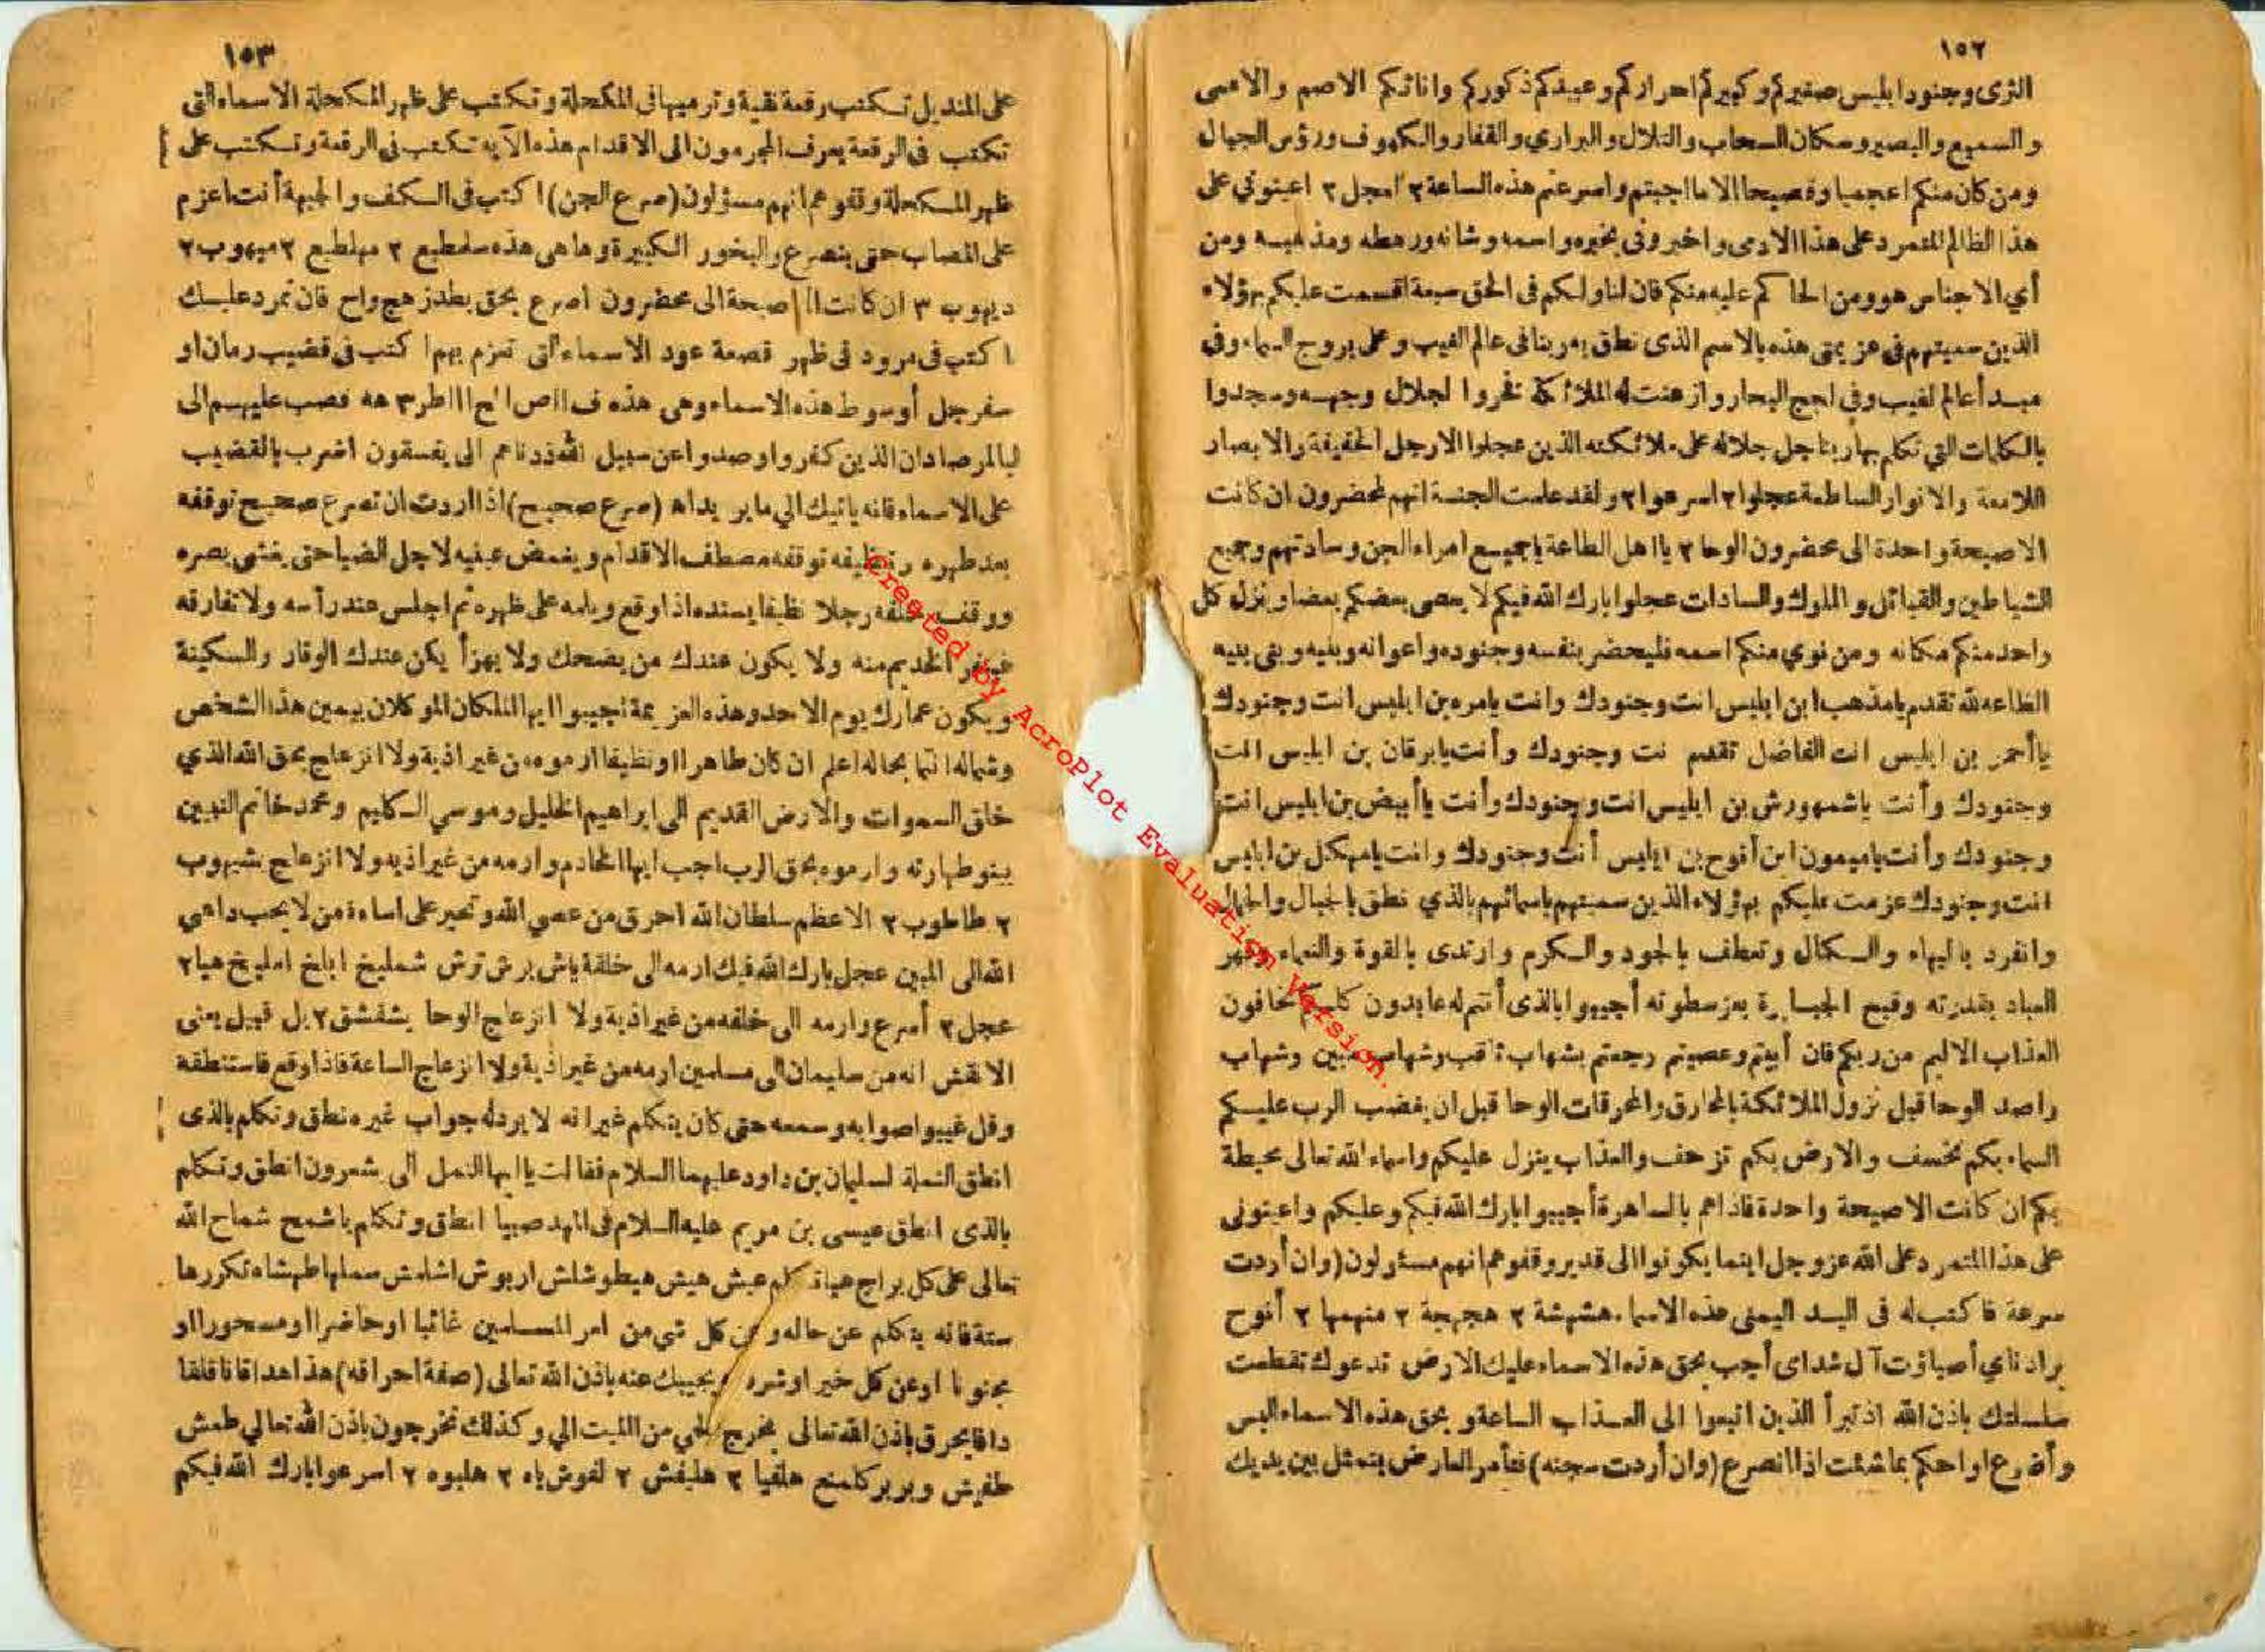 ١٥٢
الثرى وجنود ابليس صغيركم وكبيركم احراركم وعبيدكم ذكوركم واناثكم الاصم والاعمى
والسميع والبصير وسكان السحاب والتلال والبراري والقفار والكهوف ورؤس الجبال
ومن كان منكم اعجميا وفصيحا الا ما اجبتم واسرعتم هذه الساعة ٢ العجل ٢ اعينوني على
هذا الظالم المتمرد على هذا الادمى واخبروني بخبره واسمه وشانه ورهطه ومذهبه ومن
أي الاجناس هو ومن الحاكم عليه منكم فان لنا ولكم في الحق سعة اقسمت عليكم بهؤلاء
الذين سميتهم في عزيمتى هذه بالاسم الذى نطق به ربنا فى عالم الغيب وعلى بروج السماء وفي
مبدأ عالم لغيب وفى لجج البحار واذعنت له الملائكة فخروا لجلال وجهه وسجدوا
بالكلمات التي تكلم بها ربنا جل جلاله على ملائكته الذين عجلوا الارجل الخفيفة والابصار
اللامعة والانوار الساطعة عجلوا ٢ اسرعوا ٢ ولقد علمت الجنة انهم لمحضرون ان كانت
الاصيحة واحدة الى محضرون الوحا ٢ يا اهل الطاعة ياجميع امراء الجن وسادتهم وجميع
الشياطين والقبائل والملوك والسادات عجلوا بارك الله فيكم لا يعصى بعضكم بعضا وينزل كل
واحد منكم مكانه ومن نوي منكم اسمه فليحضر بنفسه وجنوده واعوانه وبنيه وبنى بنيه
الطاعه لله تقدم يا مذهب ابن ابليس انت وجنودك وانت يامره بن ابليس انت وجنودك
يا أحمر بن ابليس انت الفاضل تقدم نت وجنودك وأنت يابرقان بن ابليس انت
وجنودك وأنت ياشمهورش بن ابليس انت وجنودك وأنت يا أبيض بن ابليس انت
وجنودك وأنت ياميمون ابن أنوح بن ابليس أنت وجنودك وانت يا مهيكل بن ابليس
انت وجنودك عزمت عليكم بهؤلاء الذين سميتهم باسمائهم بالذي نطق بالجبال والجمال
وانفرد بالبهاء والكمال وتعطف بالجود والكرم وارتدى بالقوة والنعماء وقهر
العباد بقدرته وقبح الجبابرة بعز سطوته أجيبوا بالذى أنتم له عابدون كلكم تخافون
العذاب الاليم من ربكم فان أبيتم وعصيتم رجعتم بشهاب ثاقب وشهاب مبين وشهاب
راصد الوحا قبل نزول الملائكة بالمخارق والمحرقات الوحا قبل ان يغضب الرب عليكم
السماء بكم تخسف والارض بكم تزحف والعذاب ينزل عليكم واسماء الله تعالى محيطة
بكم ان كانت الاصيحة واحدة فاذا هم بالساهرة أجيبوا بارك الله فيكم وعليكم واعينونى
على هذا المتمرد على الله عز وجل اينما يكونوا الى قدير وقفوهم انهم مسئولون (وان أردت
سرعة فاكتب له فى اليد اليمنى هذه الاسماء هشهشة ٢ هجهجة ٢ منهمها ٢ أنوح
براد ناي أصباؤت آل شداى أجب بحق هذه الاسماء عليك الارض تدعوك تقطعت
سلسلتك باذن الله اذ تبرأ الذين اتبعوا الى العذاب الساعة و بحق هذه الاسماء البس
وأضرع او احكم بما شئت اذا انصرع (وان أردت سجنه) فتأمر العارض يتمثل بين يديك
١٥٣
على المنديل تكتب رقعة نقية وترميها فى المكحلة وتكتب على ظهر المكحلة الاسماء التى
تكتب فى الرقعة يعرف المجرمون الى الاقدام هذه الآيه تكتب فى الرقعة وتكتب على
ظهر المكحلة وقفوهم انهم مسؤلون (صرع الجن) اكتب فى الكف والجبهة أنت اعزم
على المصاب حتى ينصرع والبخور الكبيرة وها هى هذه سلمطيع ٢ مهلطيع ٢ ميهوب ٢
ديهوب ٣ ان كانت الا صيحة الى محضرون اصرع بحق بطد زهج واح فان تمرد عليك
اكتب فى مرود فى ظهر قصعة عود الاسماء التى تعزم بهم اكتب فى قضيب رمان او
سفرجل أوسوط هذه الاسماء وهى هذه ف ااص اح اااطر ٣ هه فصب عليهم الى
لبالمرصاد ان الذين كفروا وصدوا عن سبيل الله زدناهم الى يفسقون اضرب بالقضيب
على الاسماء فانه ياتيك الي ما يريد اه (صرع صحيح) اذا اردت ان تصرع صحيح توقفه
بعد طهره وتنظيفه توقفه مصطف الاقدام ويغمض عينيه لاجل الضيا حتى يغشى بصره
ووقف خلفه رجلا نظيفا يسنده اذا وقع ويامه على ظهره ثم اجلس عند رأسه ولا تفارقه
الخديم منه ولا يكون عندك من يضحك ولا يهزأ يكن عندك الوقار والسكينة
ويكون عمارك يوم الاحد وهذه العزيمة تجيبوا ايها الملكان الموكلان بيمين هذا الشخص
وشماله انتما بحاله اعلم ان كان طاهرا او نظيفا ارموه من غير اذية ولا انزعاج بحق الله الذي
خلق السموات والارض القديم الى ابراهيم الخليل وموسي الكليم ومحمد خاتم النبيين
بينو طهارته وارموه بحق الرب اجب ايها الخادم وارمه من غير اذيه ولا انزعاج بشيهوب
٢ طاطوب ٢ الاعظم سلطان الله احرق من عصى الله وتجبر على اساءة من لا يجب داعي
الله الى المبين عجل بارك الله فيك ارمه الى خلفة ياش برش ترش شمليخ ابلغ امليخ هيا ٢
عجل ٢ أسرع وارمه الى خلفه من غير اذية ولا انزعاج الوحا بشفشق ٢ بل قبيل يعنى
الانقش انه من سليمان الى مسلمين ارمه من غير اذية ولا انزعاج الساعة فاذا وقع فاستنطقه
وقل غيبوا صوابه وسمعه حتى كان يتكلم غير انه لا يرد له جواب غيره نطق وتكلم بالذى
انطق النملة لسليمان بن داود عليهما السلام فقالت يا ايها النمل الى شعرون انطق وتكلم
بالذى انطق عيسى بن مريم عليه السلام فى المهد صبيا انطق وتكلم باشمخ شماخ الله
تعالى على كل براج هيا تكلم عيش هيش هيطوشلش اربوش اشلمش سملها طهشاه تكررها
ستة فانه يتكلم عن حاله وعن كل شي من امر المسلمين غائبا او حاضرا او مسحورا او
مجنونا اوعن كل خير اوشره ويجيبك عنه باذن الله تعالى (صفة احراقه) هذا هدا قانا قلقا
داقا يحرق باذن الله تعالى يخرج الحي من الميت الي وكذلك تخرجون باذن الله تعالي طمش
طفيش وبربر كلمنع هلفيا ٢ هليفش ٢ لفوش ياه ٢ هلبوه ٢ اسرعوا بارك الله فيكم
Created by AcroPlot Evaluation Version.